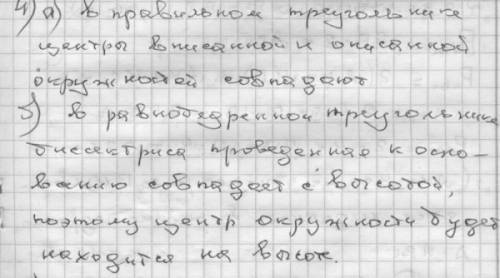 4) а) в правильном треугольнике
центры вписанной и описанной
окружностей совпадают
б) в равнобедренном треугольнике
биссектриса проведенная к осно-
ванию совпадает с высотой,
поэтому центр окружности будет
находится на высоте.